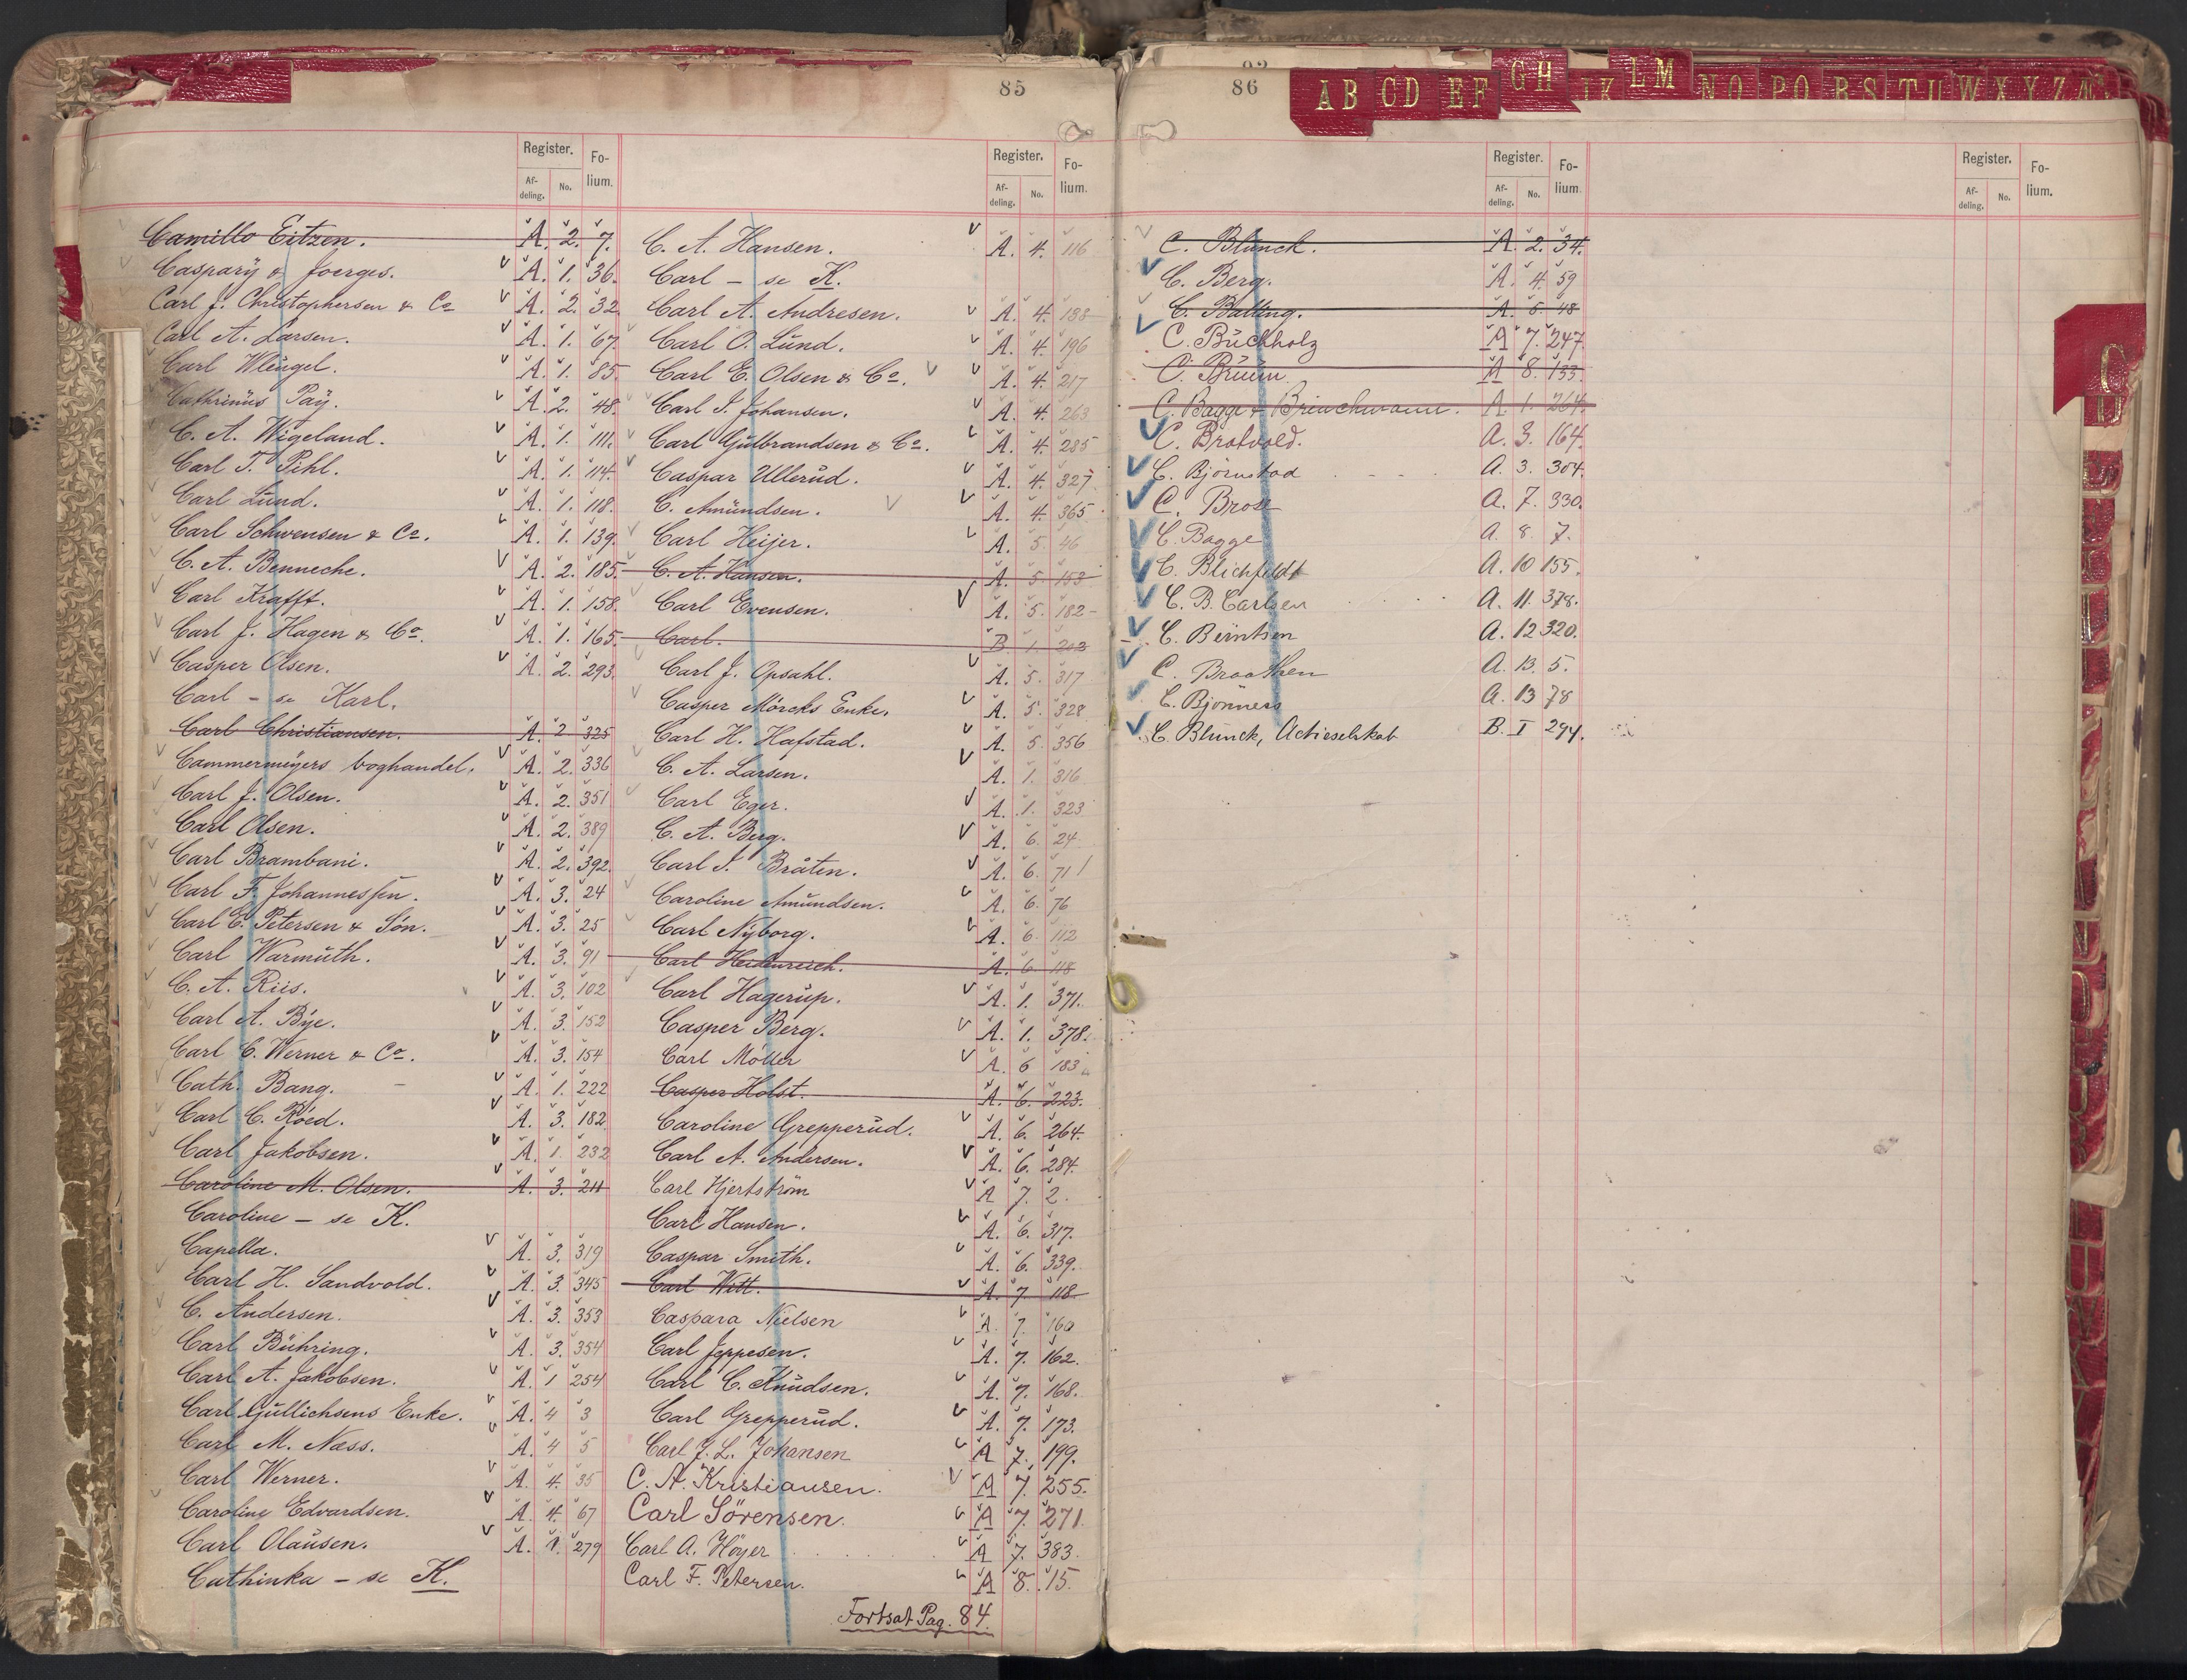 85
Register. Fo-
Af- No. lium.
deling.
Camillo Eitzen. A. 2. 7.
Caspary & Joerges. A. 1. 36.
Carl J. Christophersen & Co A. 2. 32.
Carl A. Larsen. A. 1. 67.
Carl Wleügel. A. 1. 85.
Cathrinüs Paÿ. A. 2. 48.
C. A. Wigeland. A. 1. 111.
Carl T. Pihl. A. 1. 114.
Carl Lünd. A. 1. 118.
Carl Schwensen & Co. A. 1. 139.
C. A. Benneche. A. 2. 185.
Carl Krafft. A. 1. 158.
Carl J. Hagen & Co. A. 1. 165.
Casper Olsen. A. 2. 293.
Carl – se Karl.
Carl Christiansen. A. 2 325
Cammermeyers boghandel. A. 2. 336
Carl J. Olsen. A. 2. 351
Carl Olsen. A. 2. 389
Carl Brambani. A. 2. 392.
Carl F. Johannessen. A. 3. 24
Carl E. Petersen & Sön. A. 3. 25
Carl Warmüth. A. 3. 91
C. A. Riis. A. 3. 102
Carl A. Bÿe. A. 3. 152
Carl C. Werner & Co. A. 3. 154
Cath. Bang. A. 1. 222
Carl C. Röed. A. 3. 182.
Carl Jakobsen. A. 1. 232
Caroline M. Olsen. A. 3. 211
Caroline – se K.
Capella. A. 3. 319
Carl H. Sandvold. A. 3. 345
C. Andersen. A. 3. 353
Carl Bühring. A. 3. 354
Carl A. Jakobsen. A. 1 254
Carl Güllichsens Enke. A. 4 3
Carl M. Næss. A. 4 5
Carl Werner. A. 4. 35
Caroline Edvardsen. A. 4. 67
Carl Olaüsen. A. 1. 279
Cathinka – se K.
Register. Fo-
Af- No. lium.
deling.
C. A. Hansen. A. 4. 116
Carl – se K.
Carl A. Andresen. A. 4. 138
Carl O. Lünd. A. 4. 196
Carl E. Olsen & Co. A. 4. 217
Carl I. Johansen. A. 4. 263
Carl Gülbrandsen & Co. A. 4. 285
Caspar Ullerüd. A. 4. 327
C. Amündsen. A. 4. 365
Carl Heijer. A. 5. 46
C. A. Hansen. A. 5. 153
Carl Evensen. A. 5. 182
Carl. B. 1. 202
Carl J. Opsahl. A. 5. 317
Casper Mörcks Enke. A. 5. 328
Carl H. Hafstad. A. 5. 356
C. A. Larsen. A. 1. 316
Carl Eger. A. 1. 323
C. A. Berg. A. 6. 24
Carl I. Bråten. A. 6. 71
Caroline Amündsen. A. 6. 76
Carl Nÿborg. A. 6. 112
Carl Heidenreich. A. 6. 118
Carl Hagerüp. A. 1. 371.
Casper Berg. A. 1. 378.
Carl Möller A. 6 183
Casper Holst. A. 6. 223.
Caroline Grepperüd. A. 6. 264.
Carl A. Andersen. A. 6. 284.
Carl Hjertström A 7. 2.
Carl Hansen. A. 6. 317.
Caspar Smith. A. 6. 339.
Carl Witt. A. 7. 118
Caspara Nielsen A. 7. 160
Carl Jeppesen. A. 7. 162.
Carl C. Knüdsen. A. 7. 168.
Carl Grepperüd. A. 7. 173.
Carl J. L. Johansen A 7. 199.
C. A. Kristiansen. A 7. 255.
Carl Sörensen. A 7. 271.
Carl A. Höyer A 7. 383.
Carl F. Petersen. A 8. 15.
Fortsat Pag. 84.
86
AB CD EF GH IK LM NO PQ RS TU WX YZ
Register. Fo-
Af- No. lium.
deling.
C. Blünck. A. 2. 34.
C. Berg. A. 4. 59
C. Balling. A. 5. 48
C. Büchholz A 7. 247.
C. Brüün A 8. 133.
C. Bagge & Brinchmann. A. 1. 264.
C. Brotvold. A. 3. 164.
C. Björnstad A. 3. 304.
C. Brose A. 7. 330.
C. Bagge A. 8. 7.
C. Blichfeldt A. 10 155.
C. B. Carlsen A. 11. 378.
C. Berntsen A. 12 320.
C. Braathen A. 13. 5.
C. Bjönness A. 13 78
C. Blünck, Actieselskab B. I 294.
Register. Fo-
Af- No. lium.
deling.